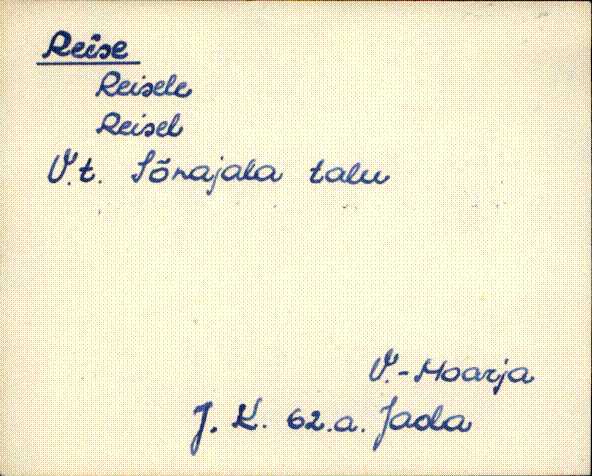 Reise
Reisele
Reisel
V.t. Sõnajala talu
V.-Maarja
J. K. 62.a. Jada